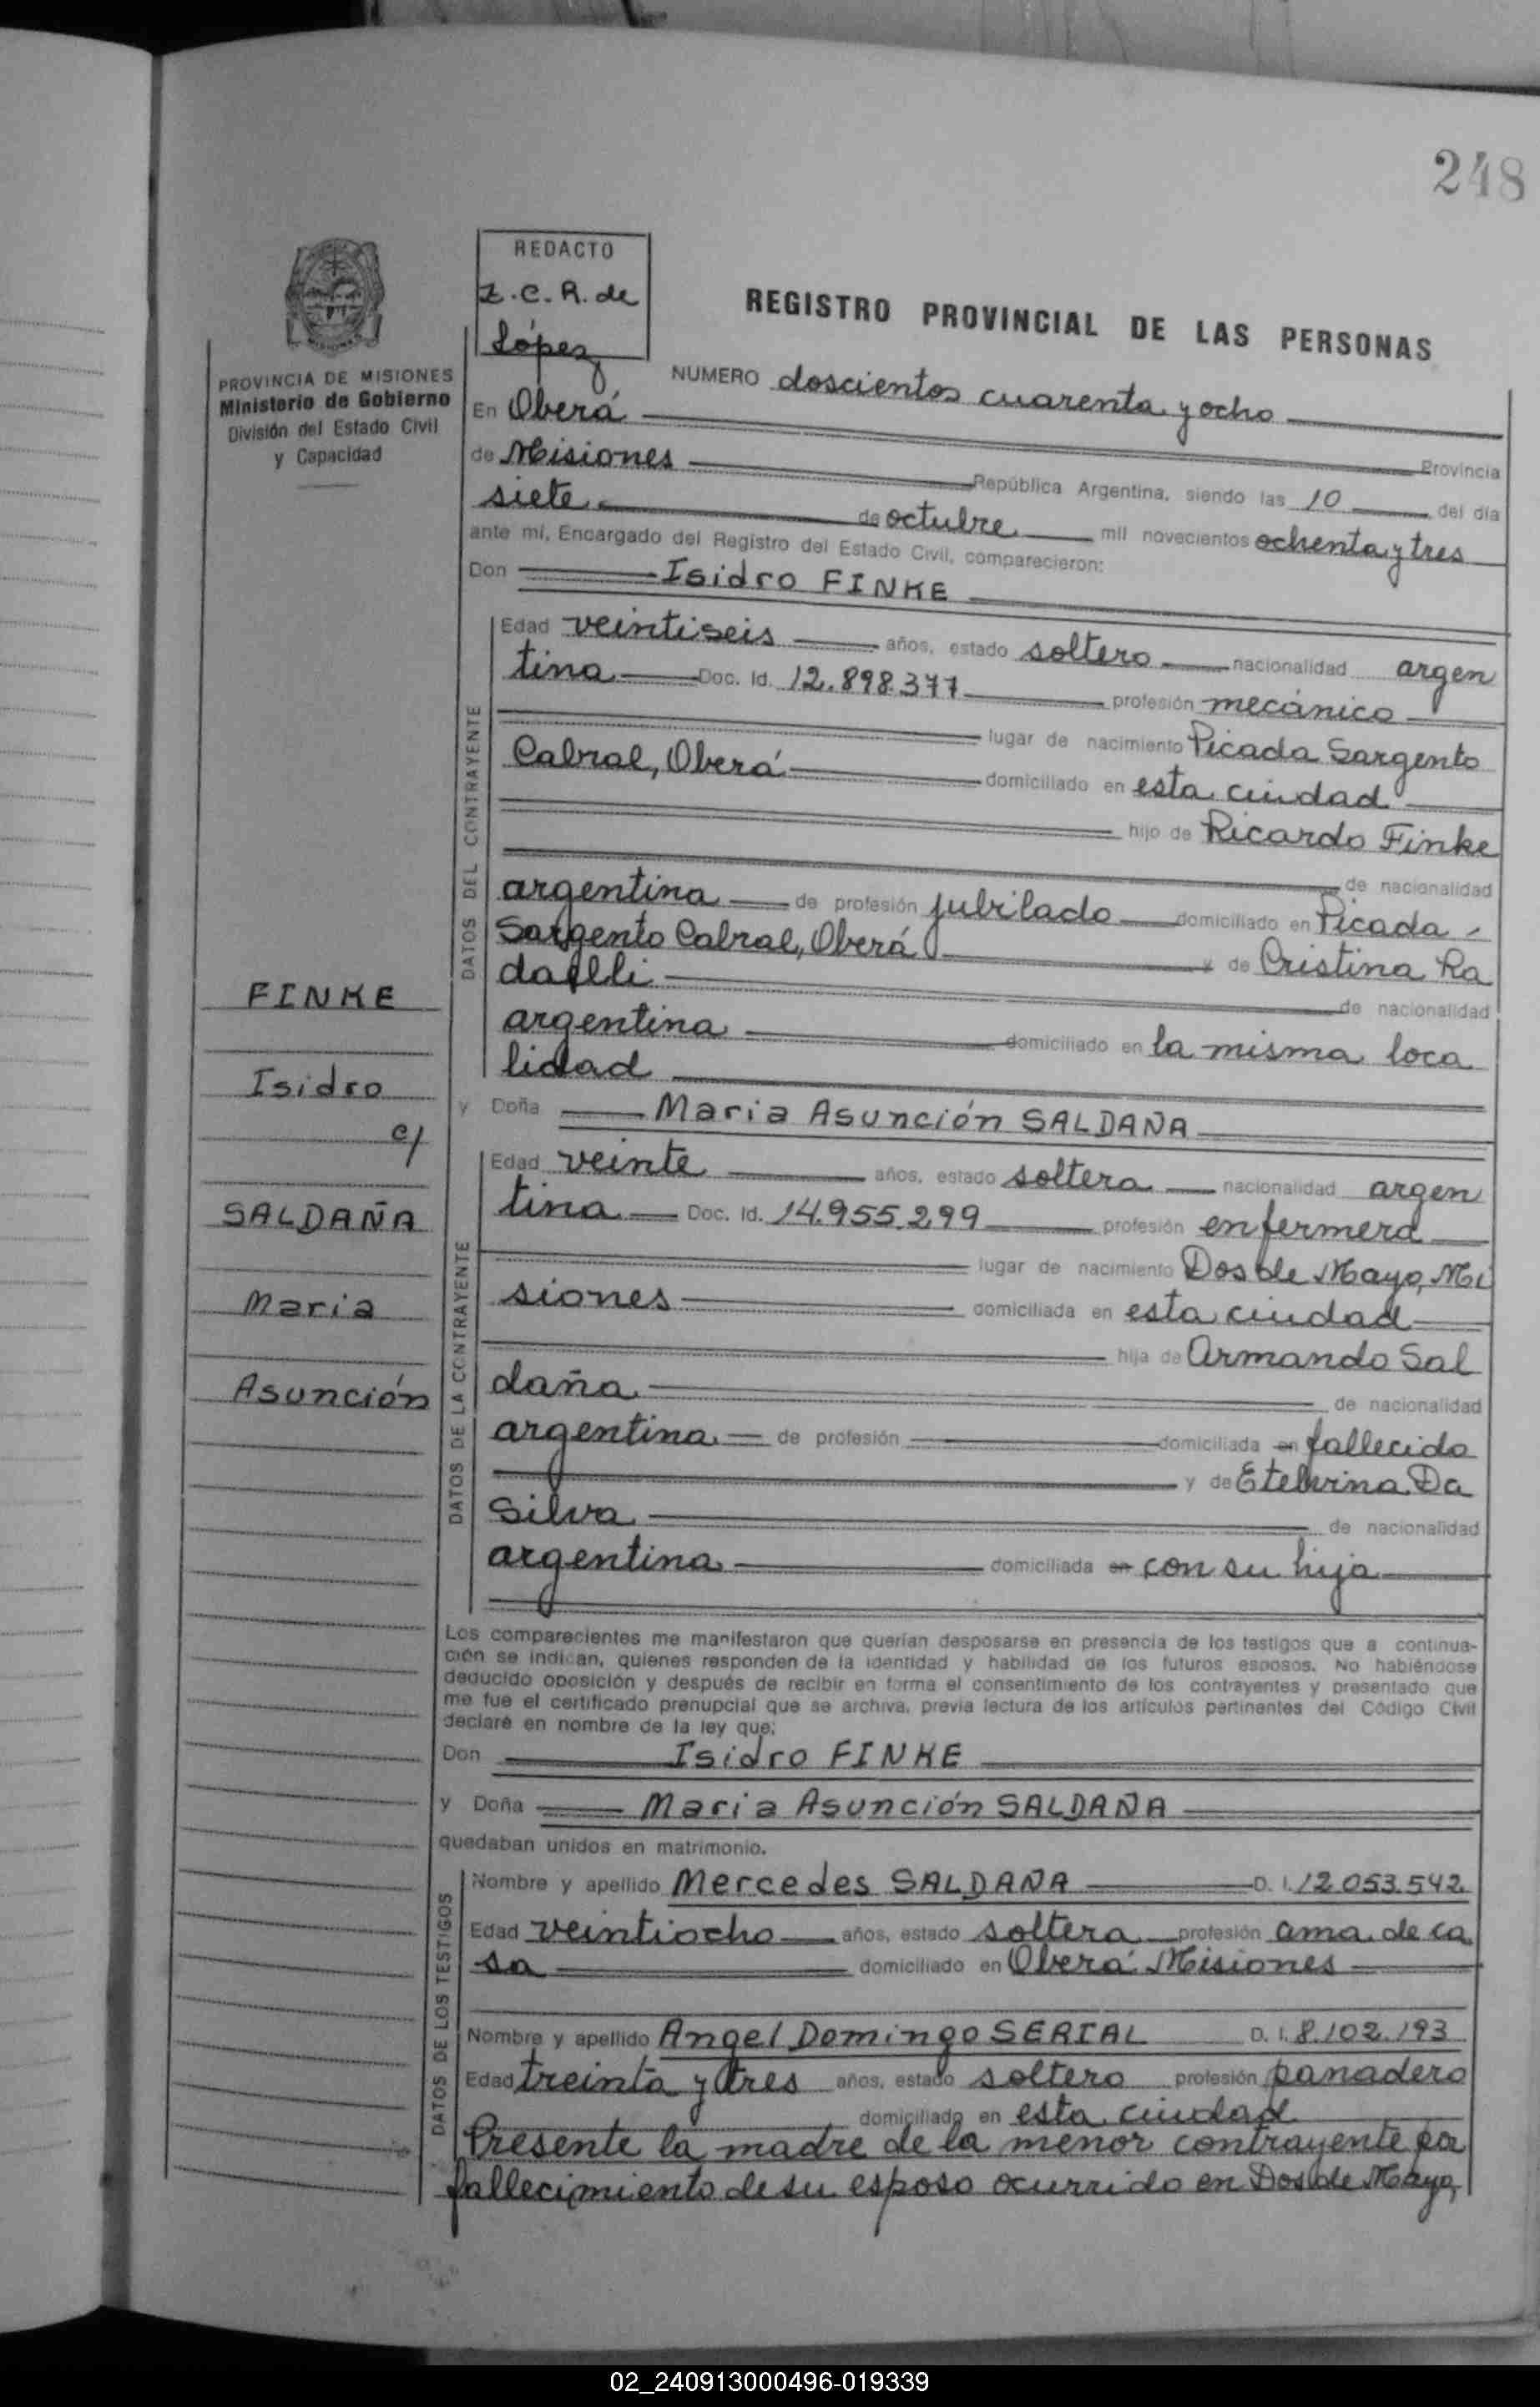 248
REDACTO
Z.C.R. de
López
REGISTRO PROVINCIAL DE LAS PERSONAS
PROVINCIA DE MISIONES
Ministerio de Gobierno
División del Estado Civil
y Capacidad
NUMERO doscientos cuarenta y ocho
En Oberá Provincia
de Misiones República Argentina, siendo las 10 del día
siete de octubre mil novecientos ochenta y tres
ante mí, Encargado del Registro del Estado Civil, comparecieron:
Don Isidro FINKE
DATOS DEL CONTRAYENTE
Edad veintiseis años, estado soltero nacionalidad argen
tina Doc. Id. 12.898.377 profesión mecánico
lugar de nacimiento Picada Sargento
Cabral, Oberá domiciliado en esta ciudad
hijo de Ricardo Finke
de nacionalidad
argentina de profesión jubilado domiciliado en Picada
Sargento Cabral, Oberá y de Cristina Ra
de nacionalidad
argentina domiciliado en la misma loca
lidad
FINKE
Isidro
c/
SALDAÑA
Maria
Asunción
y Doña Maria Asunción SALDAÑA
DATOS DE LA CONTRAYENTE
Edad veinte años, estado soltera nacionalidad argen
tina Doc. Id. 14.955.299 profesión enfermera
lugar de nacimiento Dos de Mayo, Mi
siones domiciliada en esta ciudad
hija de Armando Sal
daña de nacionalidad
argentina de profesión domiciliada en fallecido
y de Etelvina Da
Silva de nacionalidad
argentina domiciliada en con su hija
Los comparecientes me manifestaron que querían desposarse en presencia de los testigos que a continua-
ción se indican, quienes responden de la identidad y habilidad de los futuros esposos. No habiéndose
deducido oposición y después de recibir en forma el consentimiento de los contrayentes y presentado que
me fue el certificado prenupcial que se archiva, previa lectura de los artículos pertinentes del Código Civil
declaré en nombre de la ley que:
Don Isidro FINKE
y Doña Maria Asunción SALDAÑA
quedaban unidos en matrimonio.
DATOS DE LOS TESTIGOS
Nombre y apellido Mercedes SALDAÑA D. I. 12.053.542
Edad veintiocho años, estado soltera profesión ama de ca
sa domiciliado en Oberá Misiones
Nombre y apellido Angel Domingo SERIAL D. I. 8.102.193
Edad treinta y tres años, estado soltero profesión panadero
domiciliado en esta ciudad
Presente la madre de la menor contrayente por
fallecimiento de su esposo ocurrido en Dos de Mayo,
02_240913000496-019339